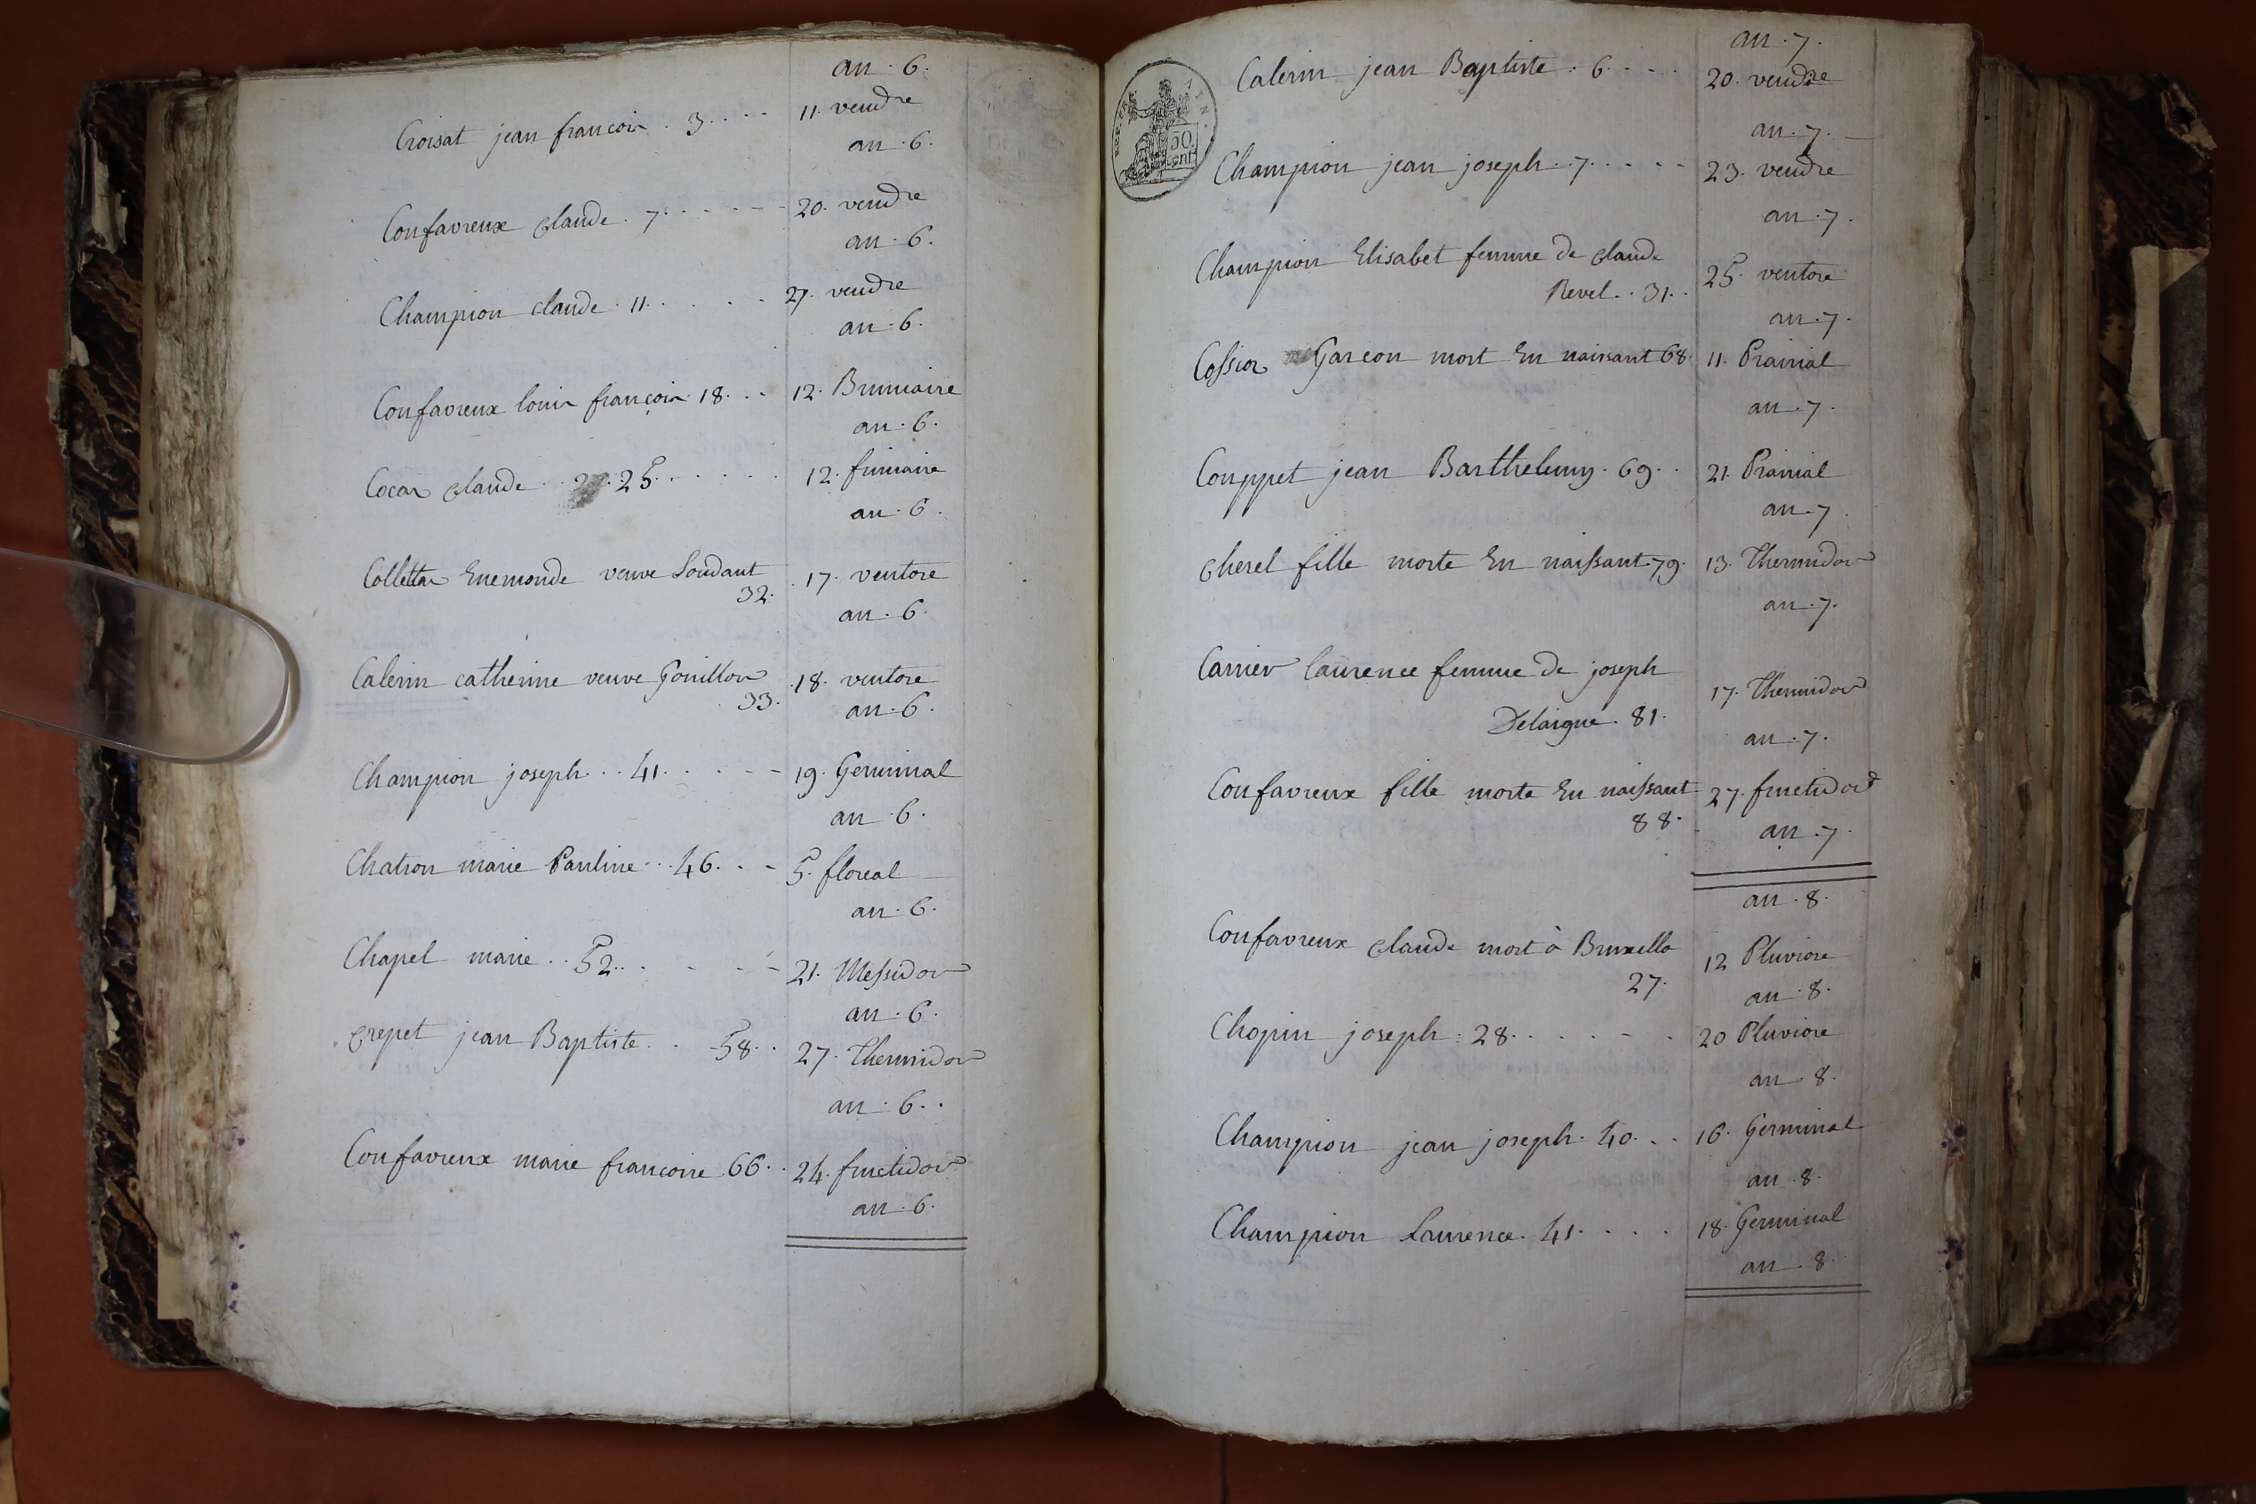 an . 6.
Croisat jean francois . 3 . . . . 11. vendre
an . 6.
Confavreux claude . 7 . . . . . 20. vendre
an . 6.
Champion claude . 11 . . . . . 27. vendre
an . 6.
Confavreux louis françois 18 . . . 12. Brumaire
an . 6.
Cocar claude . . 25 . . . . . . 12. frimaire
an . 6.
Colletta Enemonde veuve Soudant . 17. ventose
32.
an . 6.
Calerin catherine veuve Gouillon . 18. ventose
33.
an . 6.
Champion joseph . . 41 . . . . . 19. Germinal
an . 6.
Chatron marie Pauline . . 46 . . . 5. floreal
an . 6.
Chapel marie . . 52 . . . . . 21. Messidor
an . 6.
crepet jean Baptiste . . 58 . . 27. Thermidor
an . 6 . .
Confavreux marie francoise 66 . . 24. fructidor
an . 6.
an . 7.
Calerin jean Baptiste . 6 . . . . 20. vendre
an . 7.
Champion jean joseph . 7 . . . . . 23. vendre
an . 7.
Champion Elisabet femme de claude
Revel . . 31 . . 25. ventose
an . 7.
Cossior Garcon mort En naissant 68. 11. Prairial
an . 7.
Couppet jean Barthelemy . 69 . . 21. Prairial
an . 7.
cherel fille morte En naissant . 79. 13. Thermidor
an . 7.
Carrier laurence femme de joseph
17. Thermidor
Delaigue . 81.
an . 7.
Confavreux fille morte En naissant 27. fructidor
88.
an . 7.
an . 8.
Confavreux claude mort à Bruxelle 12 Pluviose
27.
an . 8.
Chopin joseph : 28 . . . . . . 20 Pluviose
an . 8.
Champion jean joseph . 40 . . . 16. Germinal
an . 8.
Champion Laurence . 41 . . . . 18. Germinal
an . 8.
50
cent